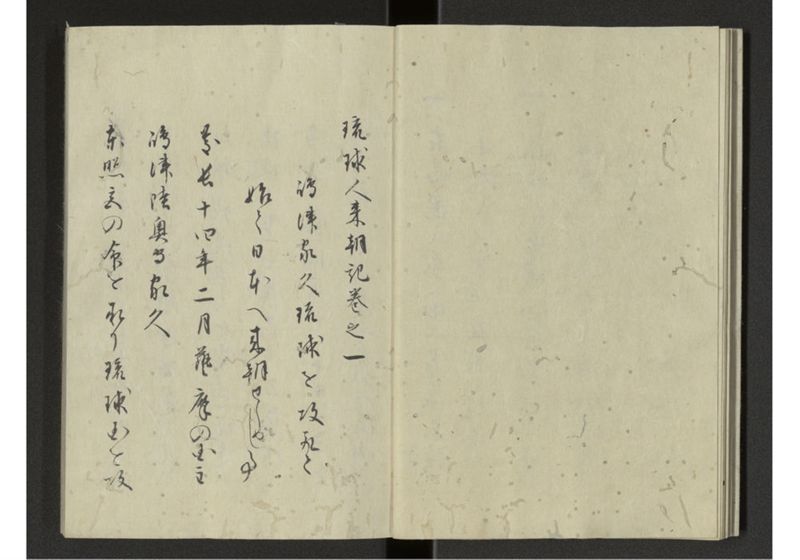 琉球人来朝記巻之一
嶋津家久琉球を攻取て
始て日本へ来朝せしむる事
慶長十四年二月薩摩の国主
嶋津陸奥守家久
東照宮の命を承り琉球国を攻